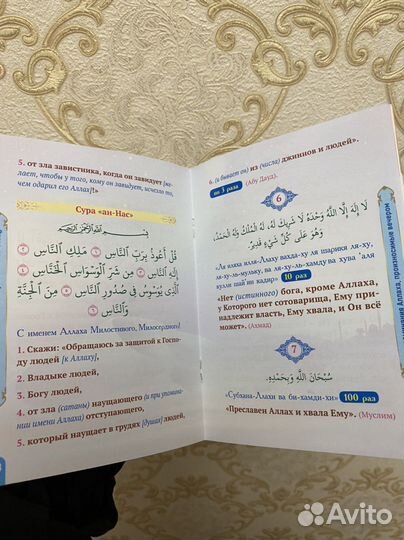 5. от зла завистника, когда он завидует (же-
лает, чтобы у того, кому он завидует, исчезло то,
чем одарил его Аллах)!»
Сура «ан-Нас»
بِسْمِ اللَّهِ الرَّحْمَٰنِ الرَّحِيمِ
قُلْ أَعُوذُ بِرَبِّ النَّاسِ ۝١ مَلِكِ النَّاسِ ۝٢
إِلَٰهِ النَّاسِ ۝٣ مِن شَرِّ الْوَسْوَاسِ الْخَنَّاسِ ۝٤
الَّذِي يُوَسْوِسُ فِي صُدُورِ النَّاسِ ۝٥ مِنَ الْجِنَّةِ
وَالنَّاسِ ۝٦
С именем Аллаха Милостивого, Милосердного!
1. Скажи: «Обращаюсь за защитой к Госпо-
ду людей [к Аллаху],
2. Владыке людей,
3. Богу людей,
4. от зла (сатаны) наущающего (и при упомина-
нии имени Аллаха) отступающего,
5. который наущает в грудях [душах] людей,
6. (и бывает он) из (числа) джиннов и людей».
по 3 раза (Абу Дауд).
6
لَا إِلَهَ إِلَّا اللَّهُ وَحْدَهُ لَا شَرِيكَ لَهُ، لَهُ الْمُلْكُ وَلَهُ الْحَمْدُ،
وَهُوَ عَلَى كُلِّ شَيْءٍ قَدِيرٌ.
«Ля иляха илля-Ллаху вахда-ху ля шарикя ля-ху,
ля-ху-ль-мульку, ва ля-ху-ль-хамду ва хува ‘аля
кулли шай ин кадир» 10 раз
«Нет (истинного) бога, кроме Аллаха,
у Которого нет сотоварища, Ему при-
надлежит власть, Ему хвала, и Он всё
может». (Ахмад)
7
سُبْحَانَ اللَّهِ وَبِحَمْدِهِ.
«Субхана-Ллахи ва би-хамди-хи» 100 раз
«Преславен Аллах и хвала Ему». (Муслим)
поминания Аллаха, произносимые вечером
Avito